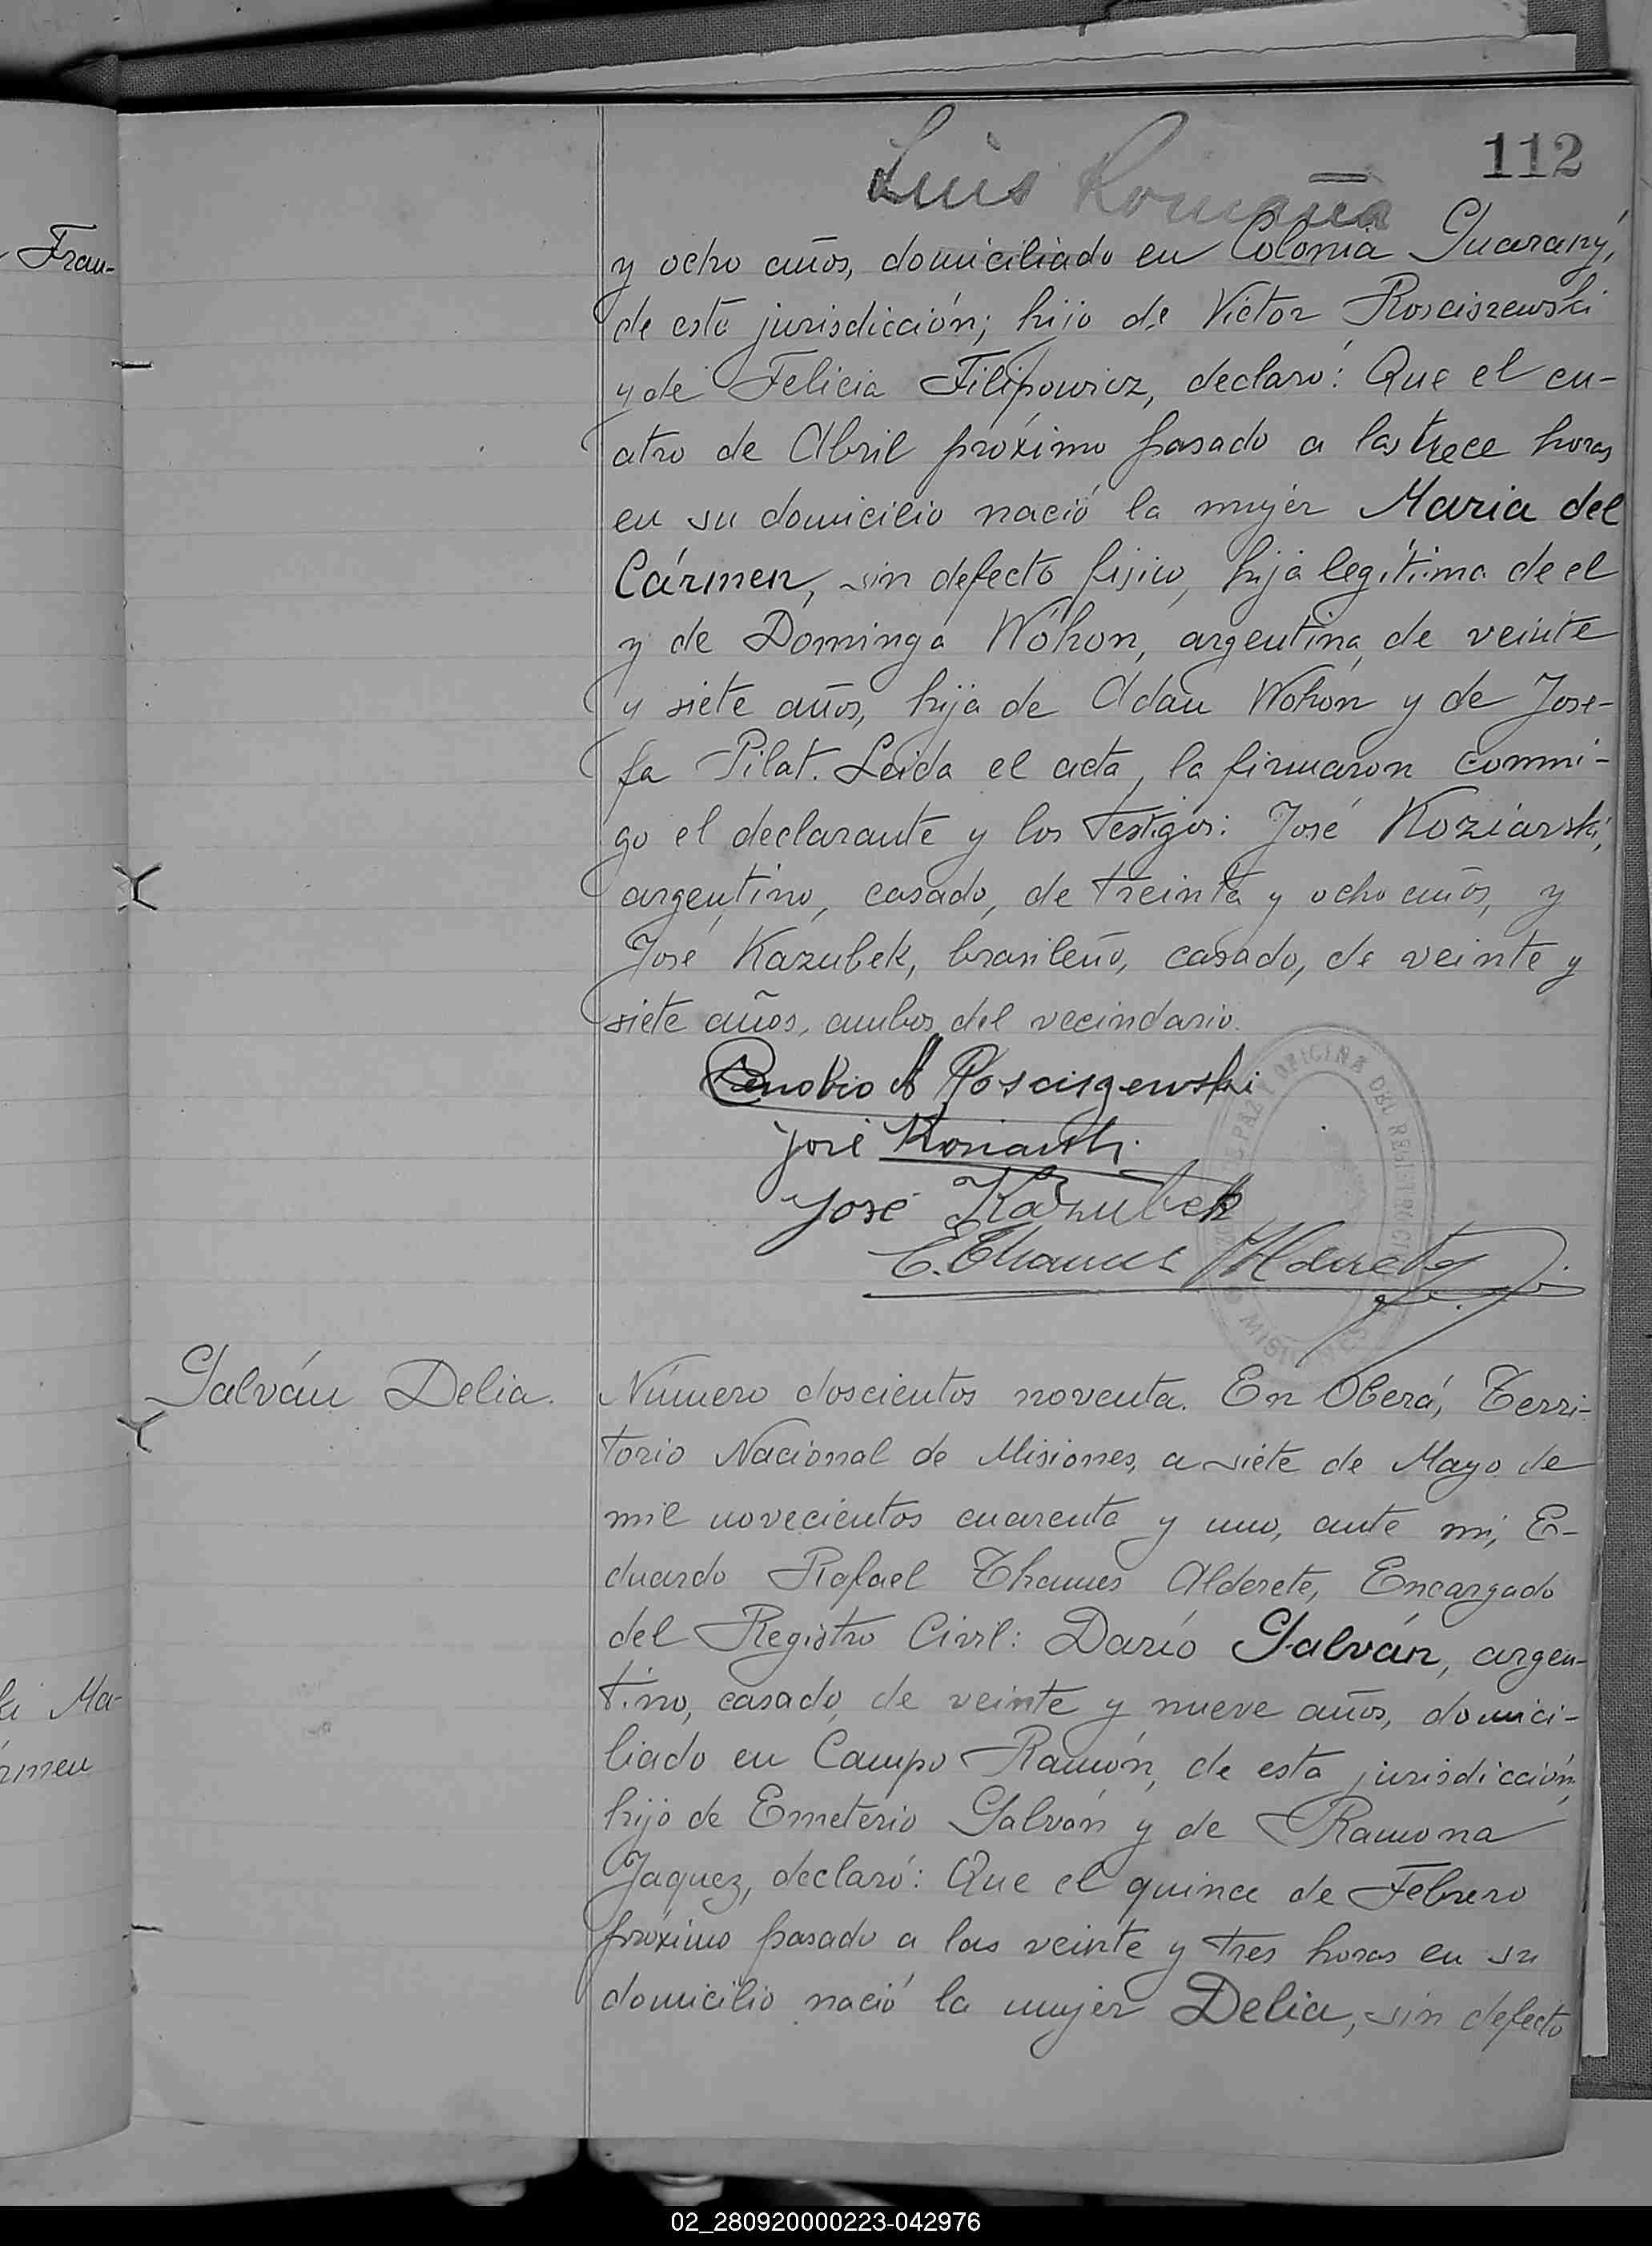 112
Luis Romaña
Fran-
y ocho años, domiciliado en Colonia Guarany,
de esta jurisdicción; hijo de Victor Rosciszewski
y de Felicia Filipowicz, declaró: Que el cu-
atro de Abril próximo pasado a las trece horas
en su domicilio nació la mujer Maria del
Cármen, sin defecto fisico, hija legítima de el
y de Dominga Wohon, argentina, de veinte
y siete años, hija de Adan Wohon y de Jose-
fa Pilat. Leida el acta, la firmaron conmi-
go el declarante y los testigos: José Koziarski,
argentino, casado, de treinta y ocho años, y
José Kazubek, brasileño, casado, de veinte y
siete años, ambos del vecindario.
Cenobio A Rosciszewski
José Koziarski
José Kazubek
E. Thames Alderete
MISIONES
Galván Delia.
Número doscientos noventa. En Oberá, Terri-
torio Nacional de Misiones, a siete de Mayo de
mil novecientos cuarenta y uno, ante mi, E-
duardo Rafael Thames Alderete, Encargado
del Registro Civil: Darío Galván, argen-
tino, casado, de veinte y nueve años, domici-
liado en Campo Ramón, de esta jurisdicción,
hijo de Emeterio Galván y de Ramona
Jaquez, declaró: Que el quince de Febrero
próximo pasado a las veinte y tres horas en su
domicilio nació la mujer Delia, sin defecto
Ma-
rmen
02_280920000223-042976